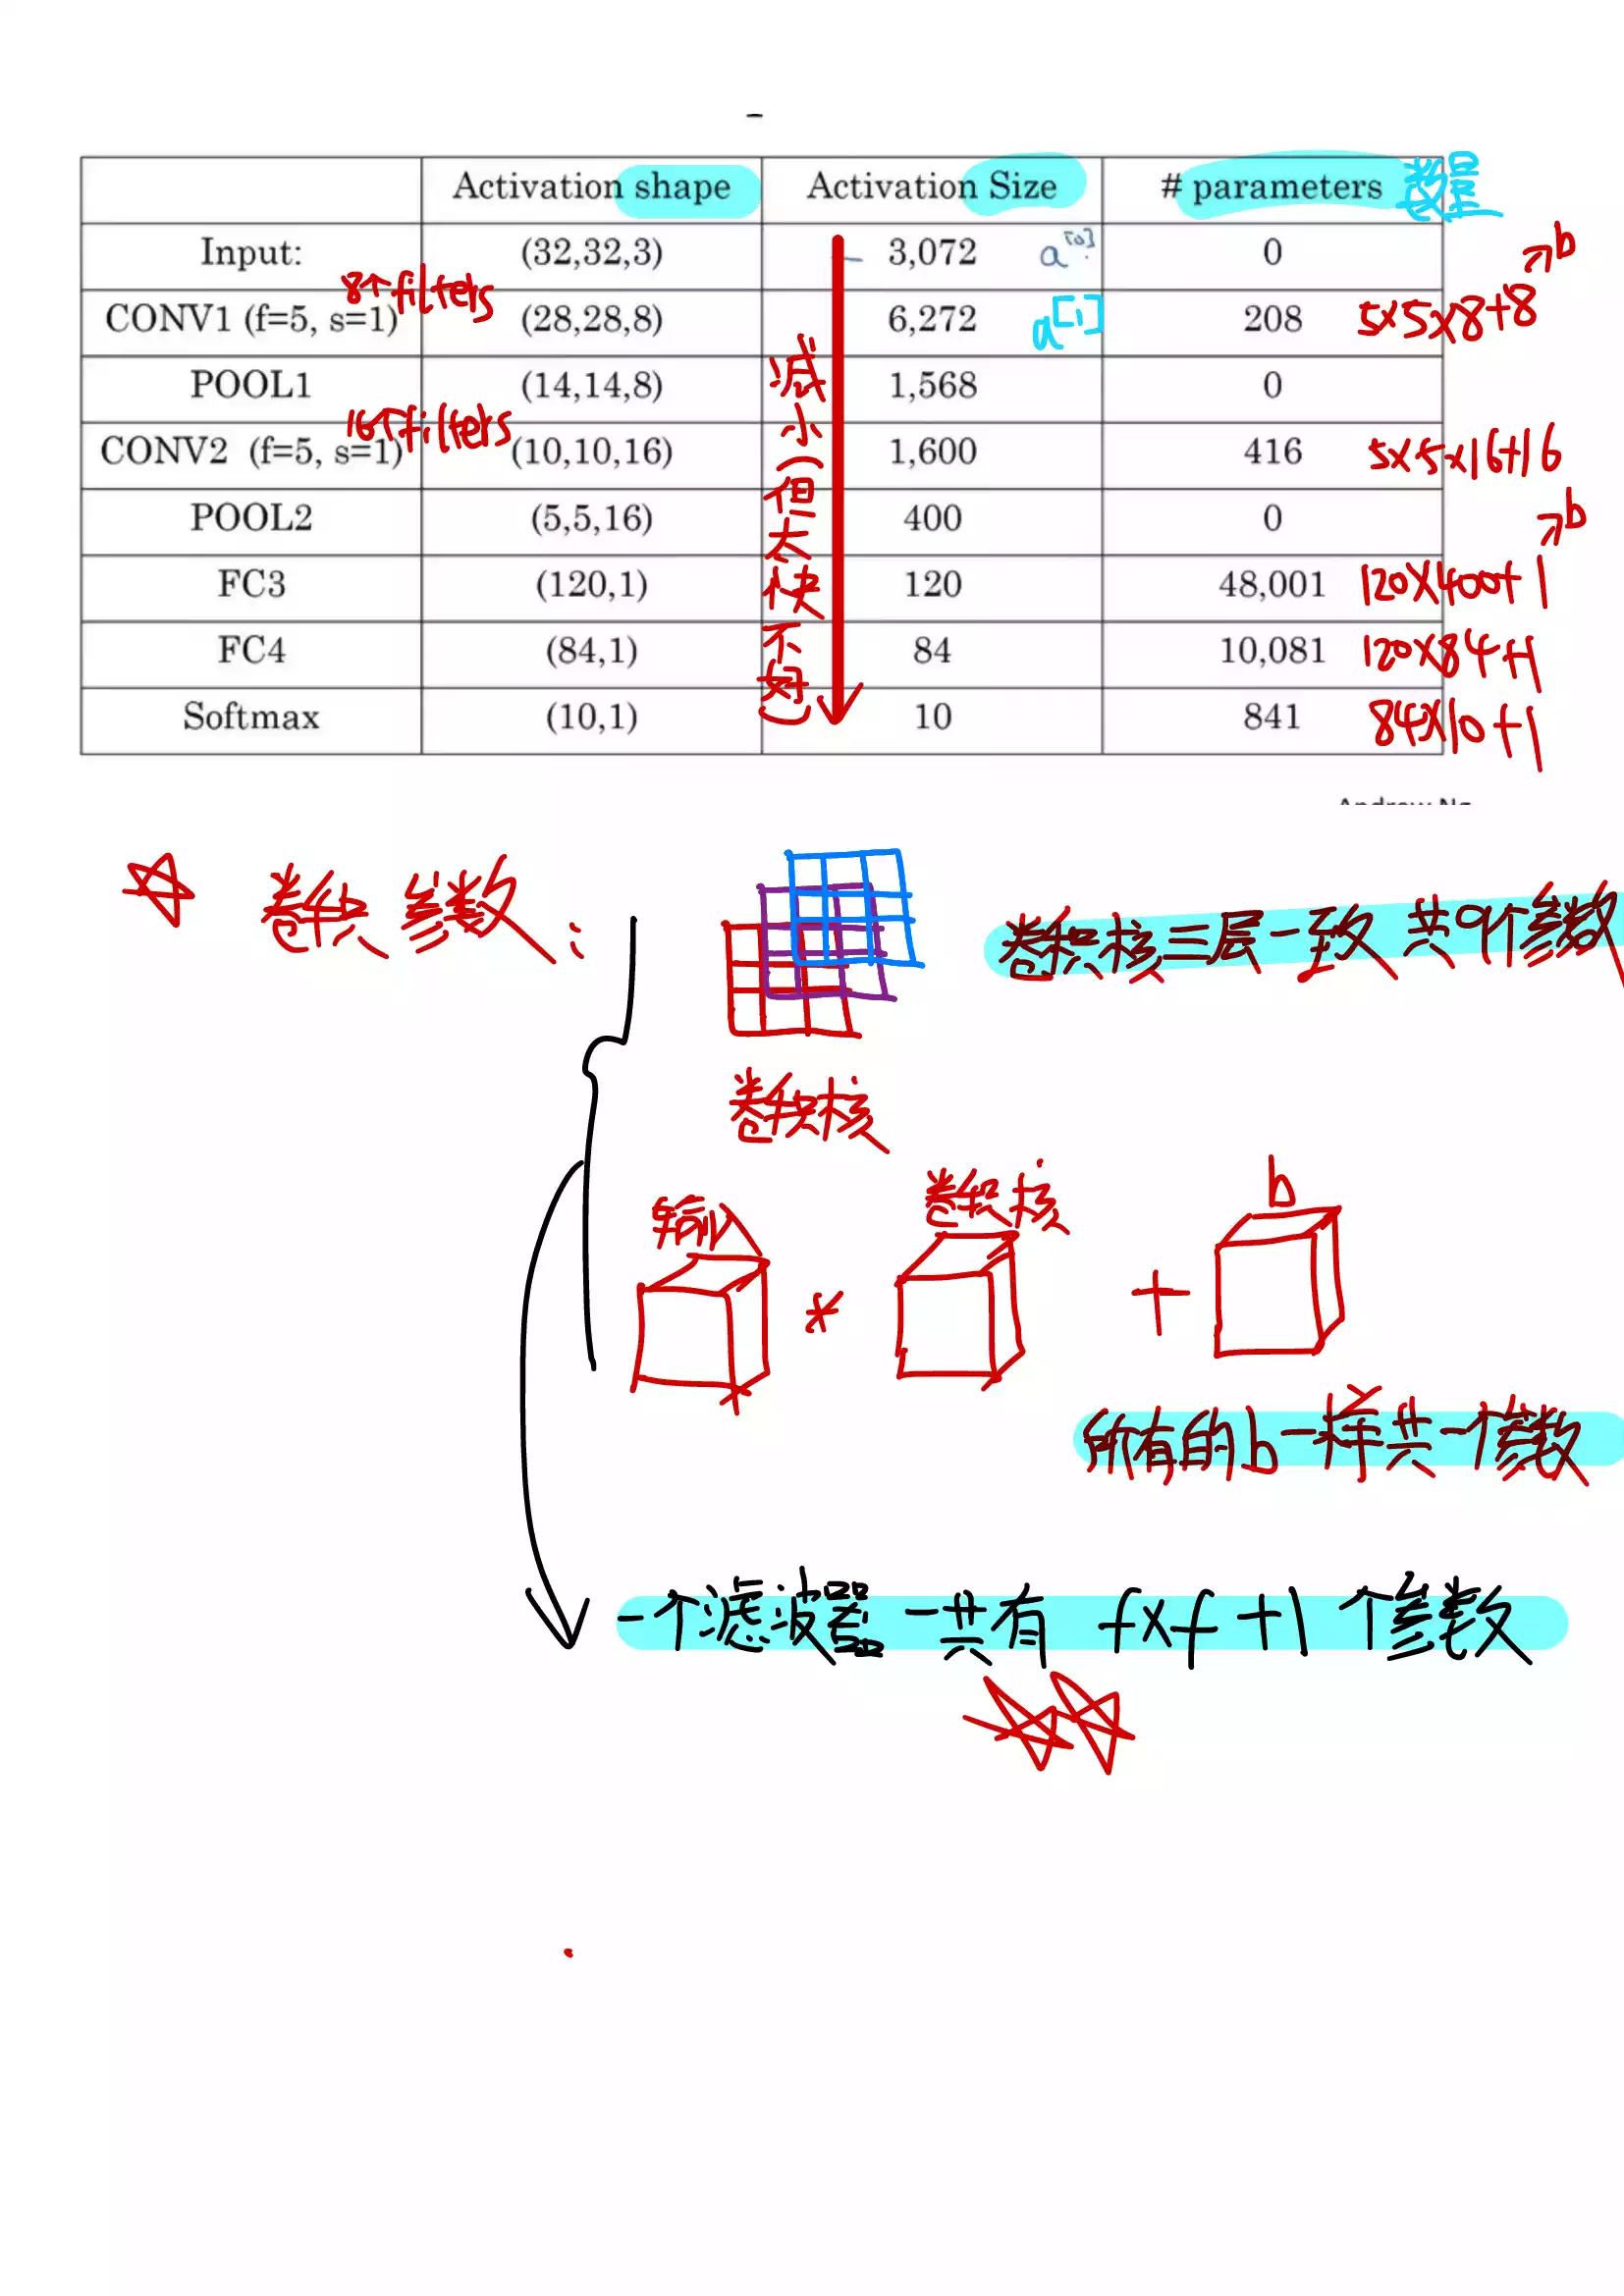 Activation shape Activation Size # parameters 数量
Input: (32,32,3) 3,072 a[0] 0 b
8个filters
CONV1 (f=5, s=1) (28,28,8) 6,272 a[1] 208 5×5×8+8
POOL1 (14,14,8) 1,568 0
16个filters
CONV2 (f=5, s=1) (10,10,16) 1,600 416 5×5×16+16
POOL2 (5,5,16) 400 0 b
FC3 (120,1) 120 48,001 120×400+1
FC4 (84,1) 84 10,081 120×84+1
Softmax (10,1) 10 841 84×10+1
减小(但太快不好)
Andrew Ng
卷积参数:
卷积核三层一致 共9个参数
卷积核
输入 * 卷积核 + b
所有的b一样共一个参数
一个滤波器一共有 f×f+1 个参数